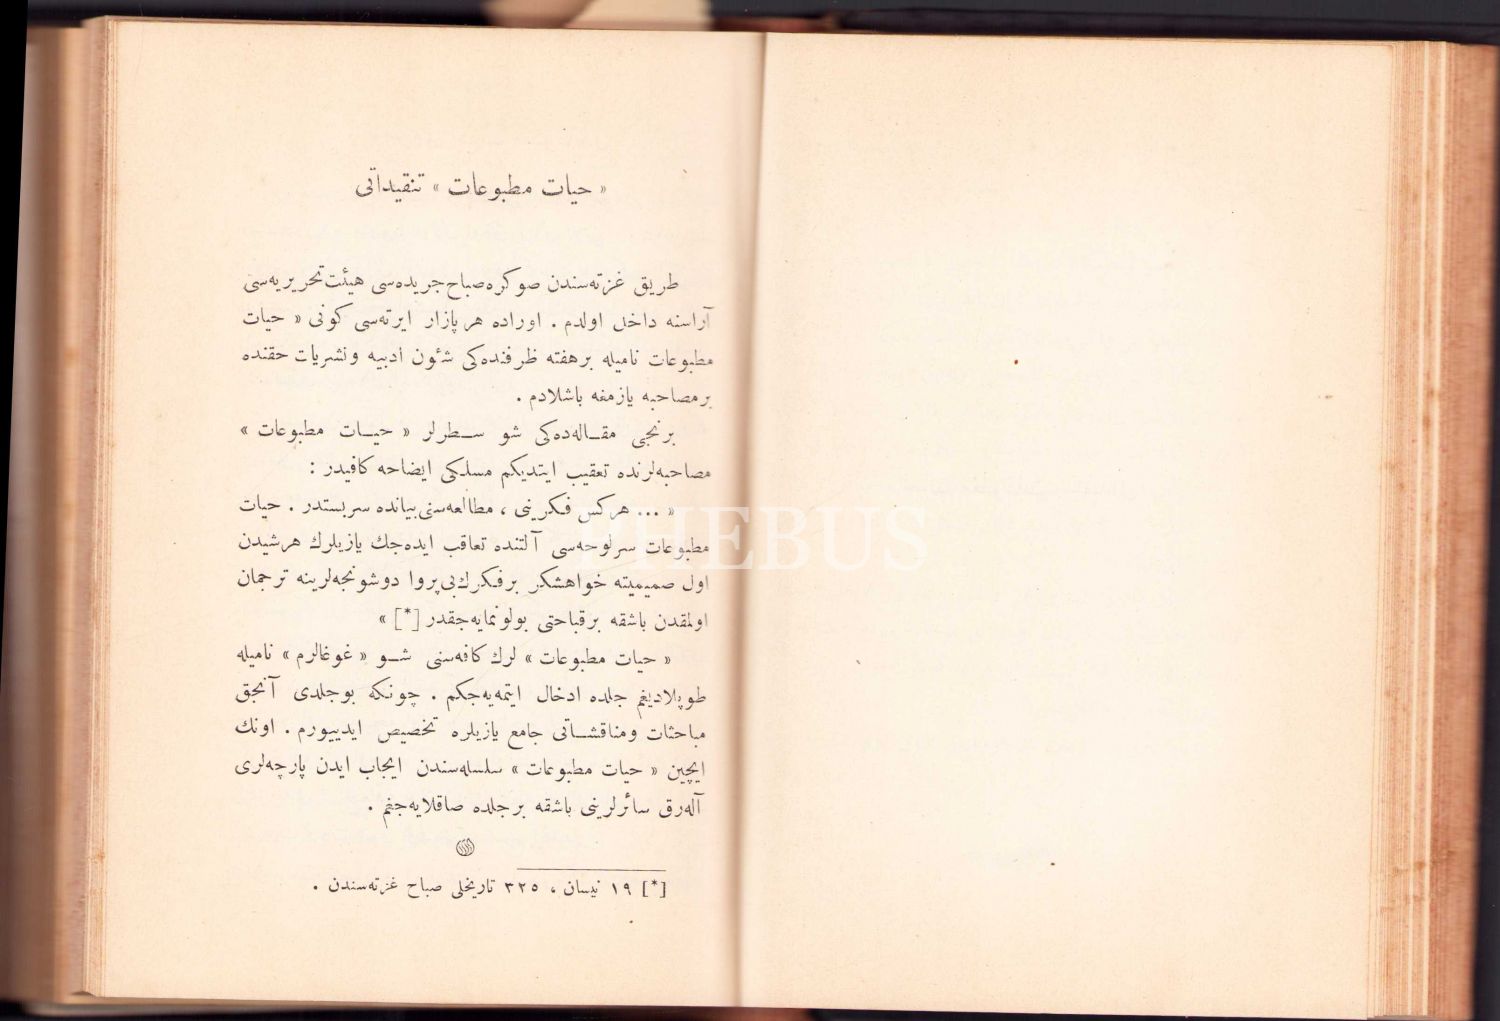 « حيات مطبوعات » تنقيداتى
طريق غزته‌سندن صوكره صباح جريده‌سى هيئت تحريريه‌سى
آراسنه داخل اولدم . اوراده هر پازار ايرته‌سى كونى « حيات
مطبوعات ناميله برهفته ظرفنده‌كى شئون ادبيه ونشريات حقنده
برمصاحبه يازمغه باشلادم .
برنجى مقاله‌ده‌كى شو سطرلر « حيات مطبوعات »
مصاحبه‌لرنده تعقيب ايتديكم مسلكى ايضاحه كافيدر :
« ... هركس فكرينى ، مطالعه‌سنى بيانده سربستدر . حيات
مطبوعات سرلوحه‌سى آلتنده تعاقب ايده‌جك يازيلرك هرشيدن
اول صميميته خواهشكر برفكرك بى پروا دوشونجه‌لرينه ترجمان
اولمقدن باشقه برقباحتى بولونمايه‌جقدر [*] »
« حيات مطبوعات » لرك كافه‌سنى شو « غوغالرم » ناميله
طوپلاديغم جلده ادخال ايتمه‌يه‌جكم . چونكه بوجلدى آنجق
مباحثات ومناقشاتى جامع يازيلره تخصيص ايدييورم . اونك
ايچين « حيات مطبوعات » سلسله‌سندن ايجاب ايدن پارچه‌لرى
آله‌رق سائرلرينى باشقه برجلده صاقلايه‌جغم .
[*] ١٩ نيسان ، ٣٢٥ تاريخلى صباح غزته‌سندن .
PHEBUS